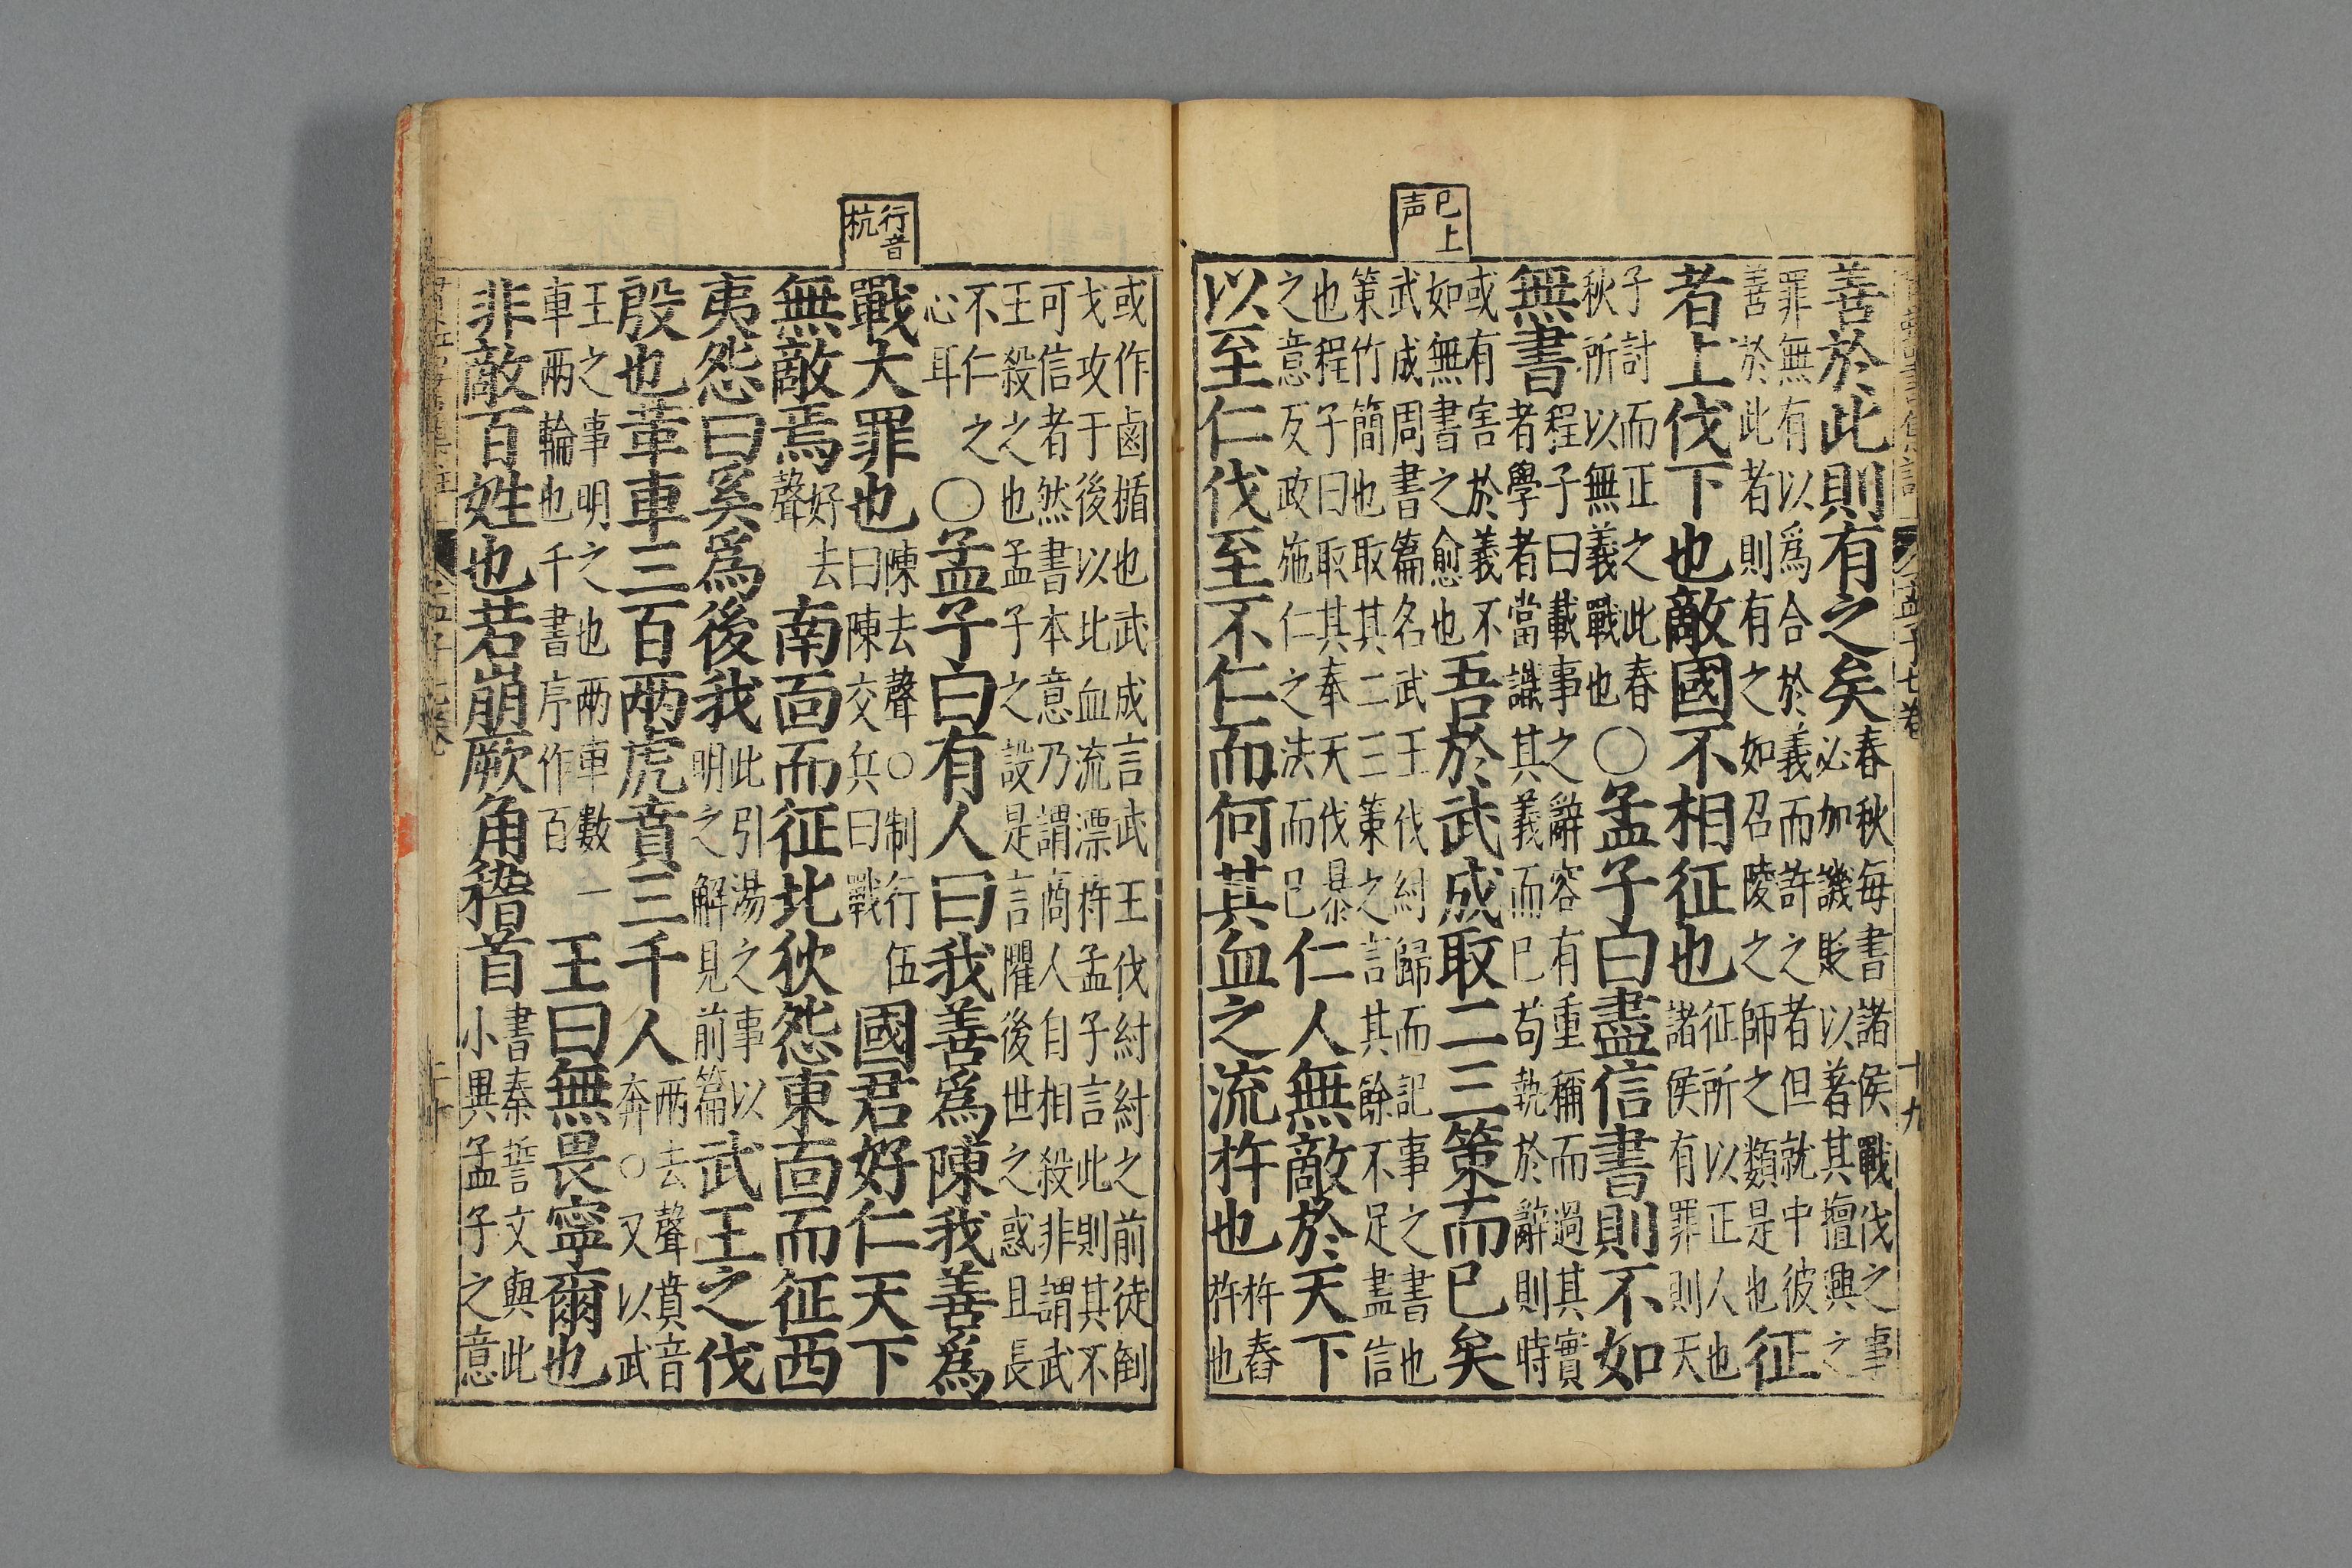 巳上
声
孟子七卷 十九
善於此則有之矣春秋每書諸侯戰伐之事必加譏貶以著其擅興之
罪無有以爲合於義而許之者但就中彼善於此者則有之如召陵之師之類是也征
者上伐下也敵國不相征也征所以正人也諸侯有罪則天
子討而正之此春秋所以無義戰也○孟子曰盡信書則不如
無書程子曰載事之辭容有重稱而過其實者學者當識其義而已苟執於辭則時
或有害於義不如無書之愈也吾於武成取二三策而已矣
武成周書篇名武王伐紂歸而記事之書也策竹簡也取其二三策之言其餘不足盡信
也程子曰取其奉天伐暴之意反政施仁之法而已仁人無敵於天下
以至仁伐至不仁而何其血之流杵也杵舂杵也
行音
杭
或作鹵楯也武成言武王伐紂紂之前徒倒戈攻于後以此血流漂杵孟子言此則其不
可信者然書本意乃謂商人自相殺非謂武王殺之也孟子之設是言懼後世之惑且長
不仁之心耳○孟子曰有人曰我善爲陳我善爲
戰大罪也陳去聲○制行伍曰陳交兵曰戰國君好仁天下
無敵焉好去聲南面而征北狄怨東面而征西
夷怨曰奚爲後我此引湯之事以明之解見前篇武王之伐
殷也革車三百兩虎賁三千人兩去聲賁音奔○又以武
王之事明之也兩車數一車兩輪也千書序作百王曰無畏寧爾也
非敵百姓也若崩厥角稽首書泰誓文與此小異孟子之意